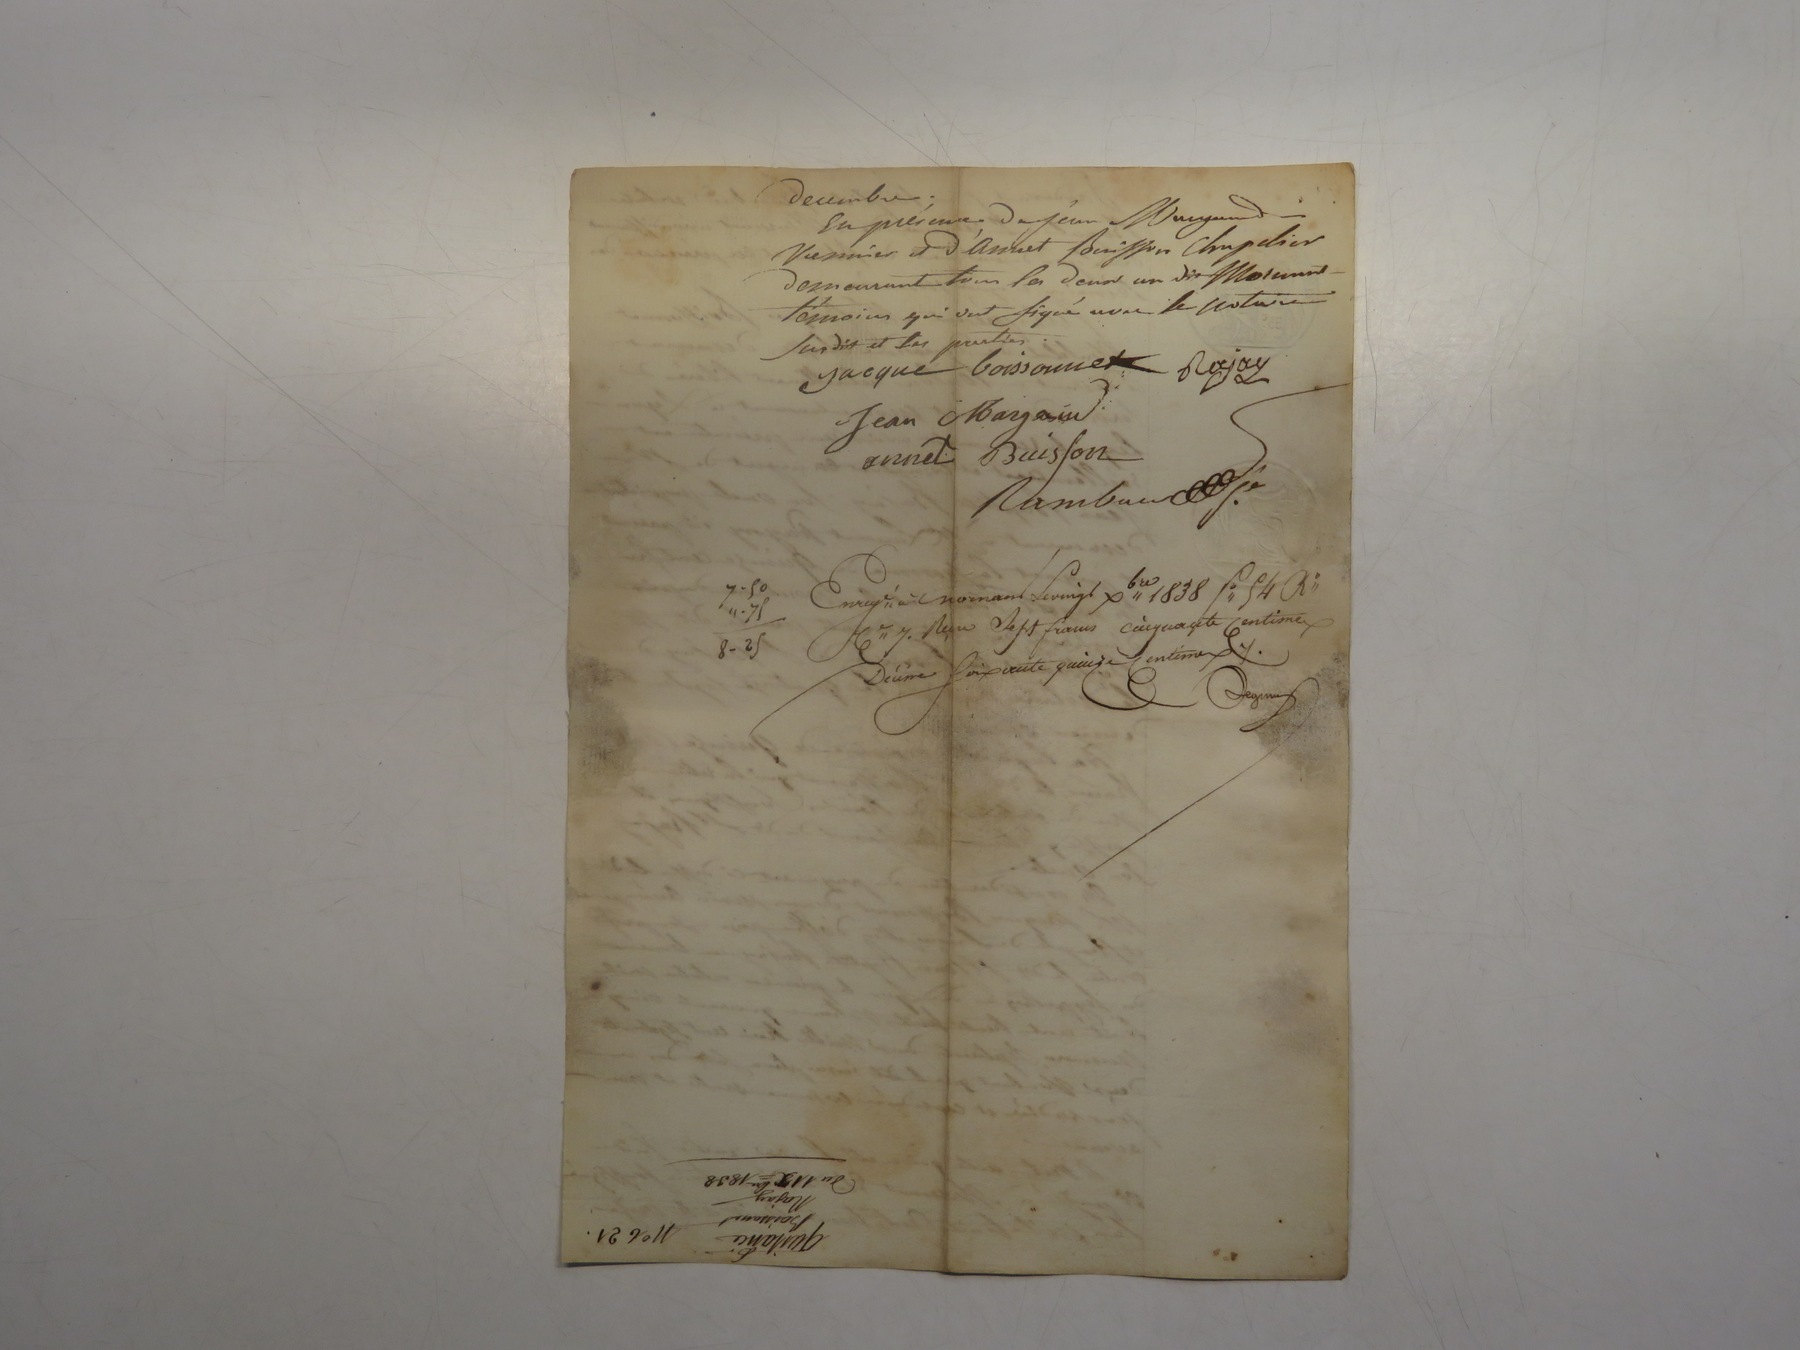 decembre.
En présence de Jean Margand
et d'Annet Buisson Chapelier
demeurant tous les deux au dit Mornant
témoins qui ont signé avec le notaire
susdit et les parties.
Jacque boissonnet Rajay
Jean Margand
annet Buisson
7-50
"-75
8-25
Enregré à mornant le vingt xbre 1838 fo 54 Ro
Ce 7. Reçu Sept francs cinquante Centimes
Décime Soixante quinze Centimes
quittance
Boissonnet
Rajay
du 11 xbre 1838
No 621.